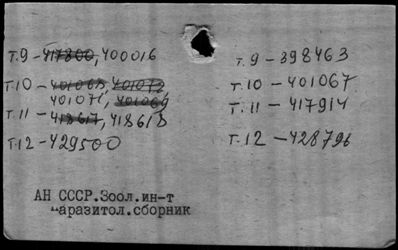 т.9 - 417800, 400016
т.10 - 401068, 401072
401071, 401069
т.11 - 418617, 418618
т.12 - 429500
т.9 - 398463
т.10 - 401067
т.11 - 417914
т.12 - 428796
АН СССР.Зоол.ин-т
Паразитол.сборник